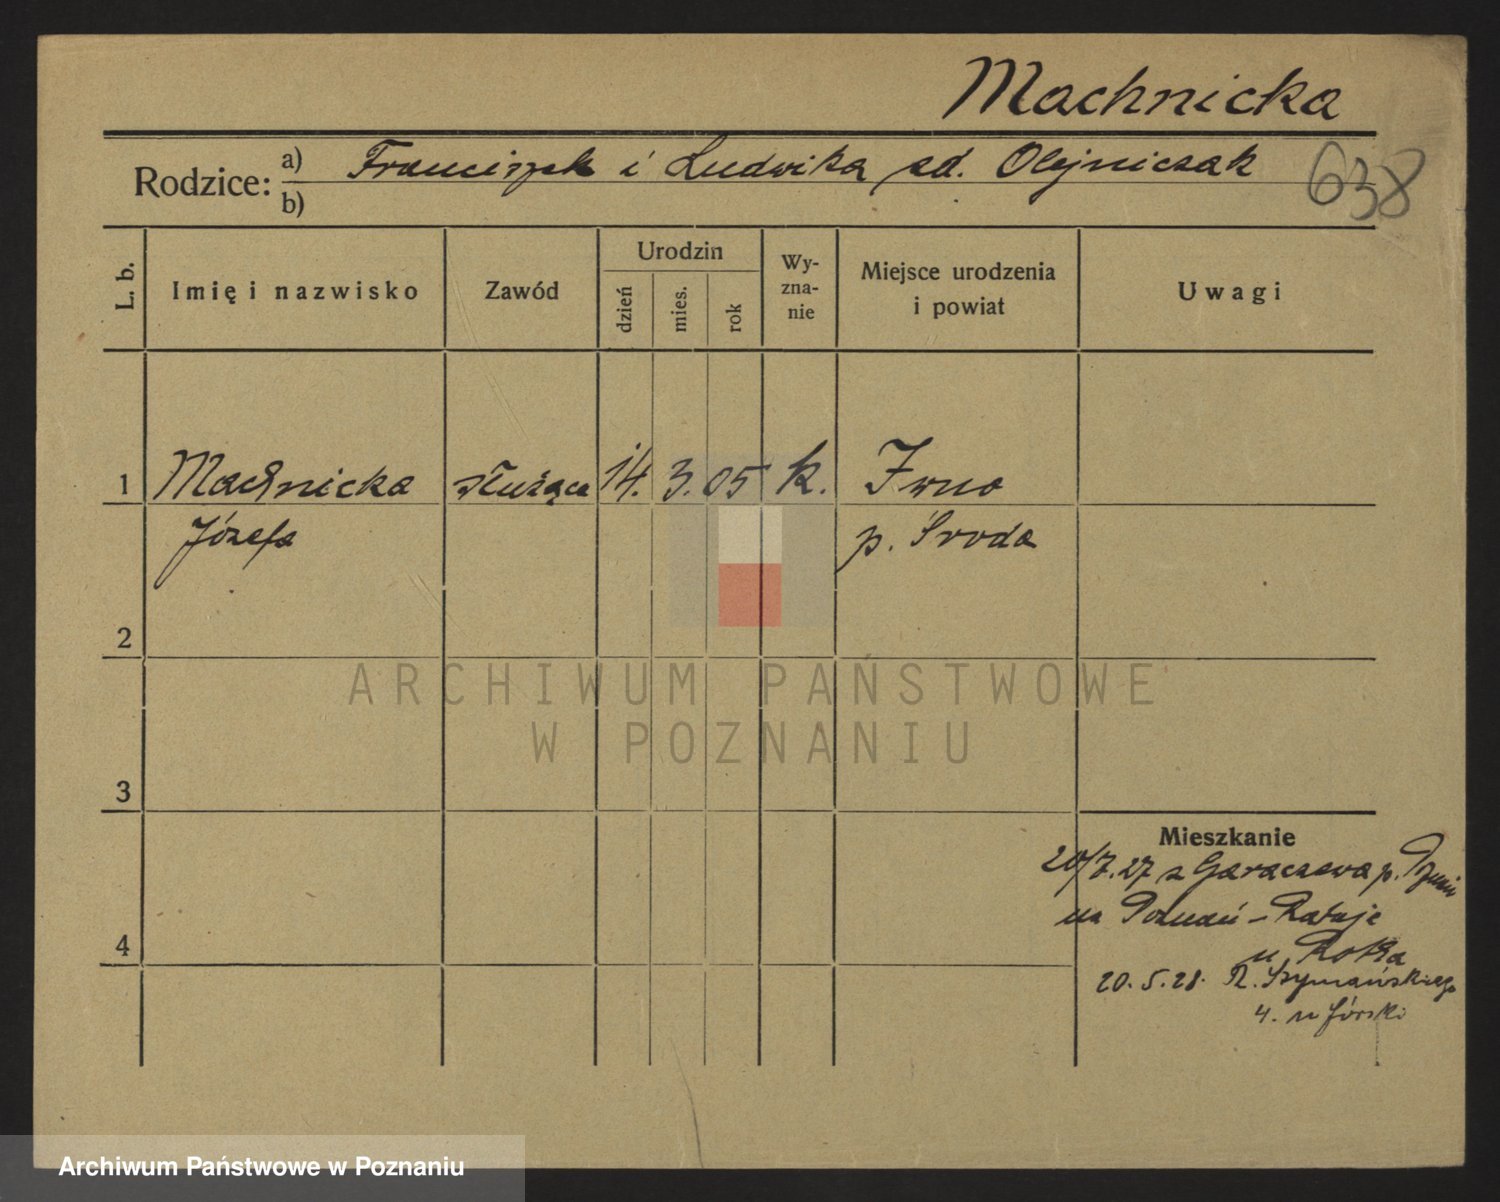 Machnicka
Rodzice: a) Franciszek i Ludwika zd. Olejniczak
b)
638
L. b.
Imię i nazwisko
Zawód
Urodzin
dzień
mies.
rok
Wy-
zna-
nie
Miejsce urodzenia
i powiat
Uwagi
1 Machnicka służąca 14. 3. 05 k. Iwno
Józefa p. Środa
2
ARCHIWUM PAŃSTWOWE
W POZNANIU
3
Mieszkanie
20/7.27 z Garaczewa p.
na Poznań - Rataje
4
u Rotha
20.5.28. R. Szymańskiego
4. u Górski
Archiwum Państwowe w Poznaniu